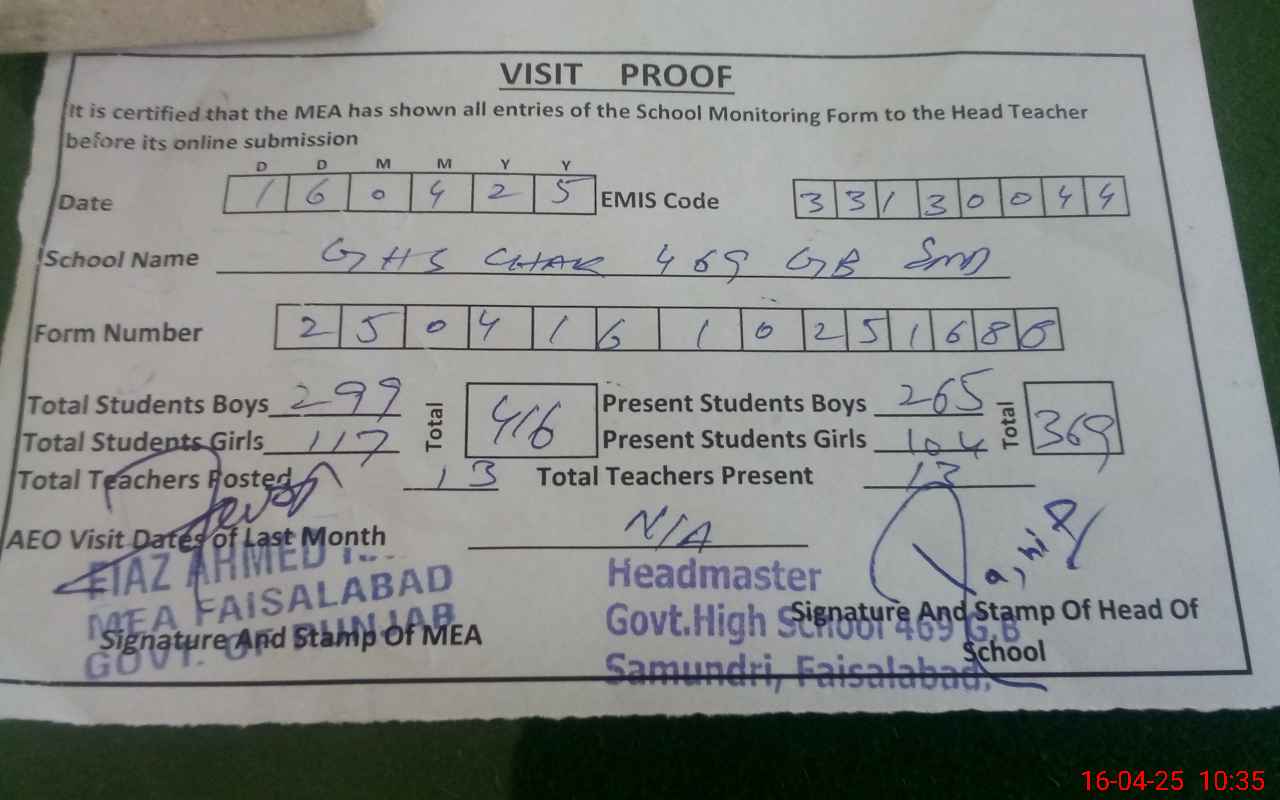 VISIT PROOF
It is certified that the MEA has shown all entries of the School Monitoring Form to the Head Teacher
before its online submission
D D M M Y Y
Date 1 6 0 4 2 5 EMIS Code 3 3 1 3 0 0 4 4
School Name GHS CHAK 469 GB SMD
Form Number 2 5 0 4 1 6 1 0 2 5 1 6 8 8
Total Students Boys 299 Total 416 Present Students Boys 265 Total 369
Total Students Girls 117 Present Students Girls 104
Total Teachers Posted 13 Total Teachers Present 13
AEO Visit Dates of Last Month N/A
AHMED
MEA FAISALABAD
GOVT. OF PUNJAB
Signature And Stamp Of MEA
Headmaster
Govt.High School 469 G.B
Samundri, Faisalabad.
Signature And Stamp Of Head Of
School
16-04-25 10:35